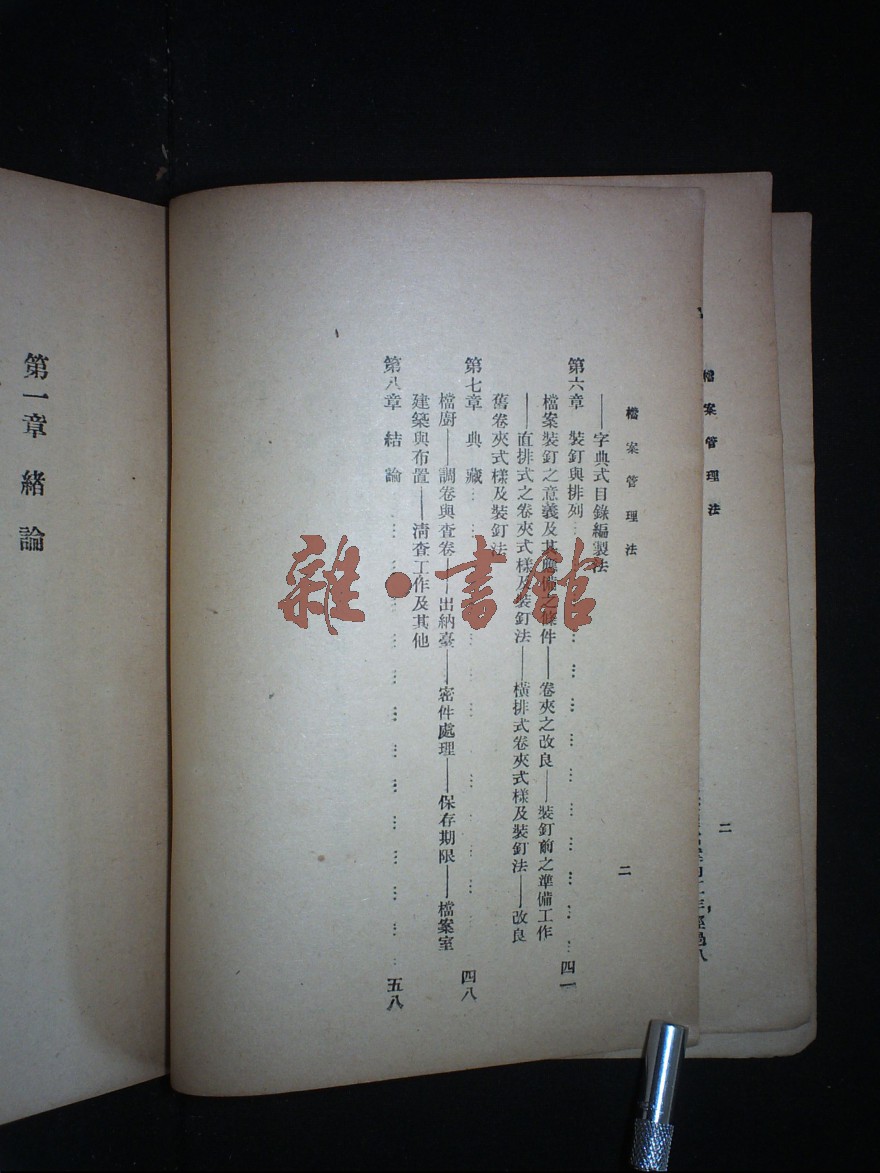 檔案管理法
二
——字典式目錄編製法
第六章 裝釘與排列…………………………四一
檔案裝釘之意義及其應備之條件——卷夾之改良——裝釘前之準備工作
——直排式之卷夾式樣及裝釘法——橫排式卷夾式樣及裝釘法——改良
舊卷夾式樣及裝釘法
第七章 典藏…………………………四八
檔廚——調卷與查卷——出納臺——密件處理——保存期限——檔案室
建築與布置——清查工作及其他
第八章 結論…………………………五八
第一章 緒論
檔案管理法
二
雜·書館